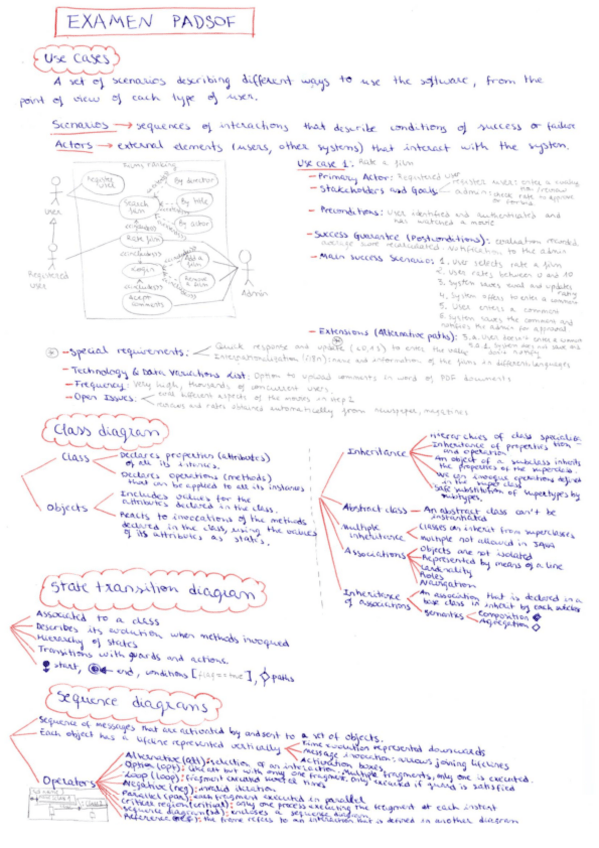 EXAMEN PADSOF
Use Cases
A set of scenarios describing different ways to use the software, from the
point of view of each type of user.
Scenarios → sequences of interactions that describe conditions of success or failure
Actors → external elements (users, other systems) that interact with the system.
Register user
Search film
By director
By title
By actor
Rate film
Login
Add a film
Remove a film
Accept comments
User
Registered user
Admin
Use case 1: Rate a film
- Primary Actor: Registered user
- Stakeholders and Goals
- Preconditions: User identified and authenticated and
has watched a movie
- Success Guarantee (Postconditions): evaluation recorded,
average score recalculated. Notification to the admin
- Main success scenario: 1. User selects rate a film
2. User rates between 0 and 10
3. System saves and updates
4. System offers to enter a comment
5. User enters a comment
6. System saves the comment and
notifies the admin for approval
- Extensions (Alternative paths): 5.a. User doesn't enter a comment
- Special requirements: Quick response and update (<0,1s) to enter the value
Internationalisation (i18n): name and information of the films in different languages
- Technology & Data Variations List: Option to upload comments in word or PDF documents
- Frequency: Very high, thousands of concurrent users.
- Open Issues: different aspects of the movies in step 2
rates obtained automatically from newspaper, magazines
Class diagram
Class
Declares properties (attributes)
of all its
Declares operations (methods)
that can be applied to all its instances
Objects
Includes values for the
attributes declared in the class.
Reacts to invocations of the methods
declared in the class using the values
of its attributes as states.
Inheritance
Hierarchies of class
Inheritance of properties
and operation
An object of a subclass inherits
the properties of the superclass.
We can invoque operations defined
in the super class
Safe substitution of supertypes by
subtypes.
Abstract class - An abstract class can't be
instantiated
Multiple inheritance
Classes can inherit from superclasses
Multiple not allowed in JAVA
Associations
Objects are not isolated
Represented by means of a line
Cardinality
Roles
Navigation
Inheritance of associations
An association that is declared in a
base class is inherit by each subclass
Semantics
Composition
Aggregation
State transition diagram
Associated to a class
Describes its evolution when methods invoqued
Hierarchy of states
Transitions with guards and actions.
start, end, conditions [flag==true], paths
Sequence diagrams
Sequence of messages that are activated by and sent to a set of objects.
Each object has a lifeline represented vertically
Time evolution represented downwards
Message invocation: arrows joining lifelines
Activation boxes
Operators
Alternative (alt): selection of an interaction. Multiple fragments, only one is executed.
Option (opt): like alt but with only one fragment. Only executed if guard is satisfied
Loop (loop): fragment executed several times
Negative (neg): invalid iteration
Parallel (par): each fragment executed in parallel
Critical region (critical): only one process executing the fragment at each instant
Sequence diagram (sd): encloses a sequence diagram
Reference (ref): the frame refers to an interaction that is defined in another diagram